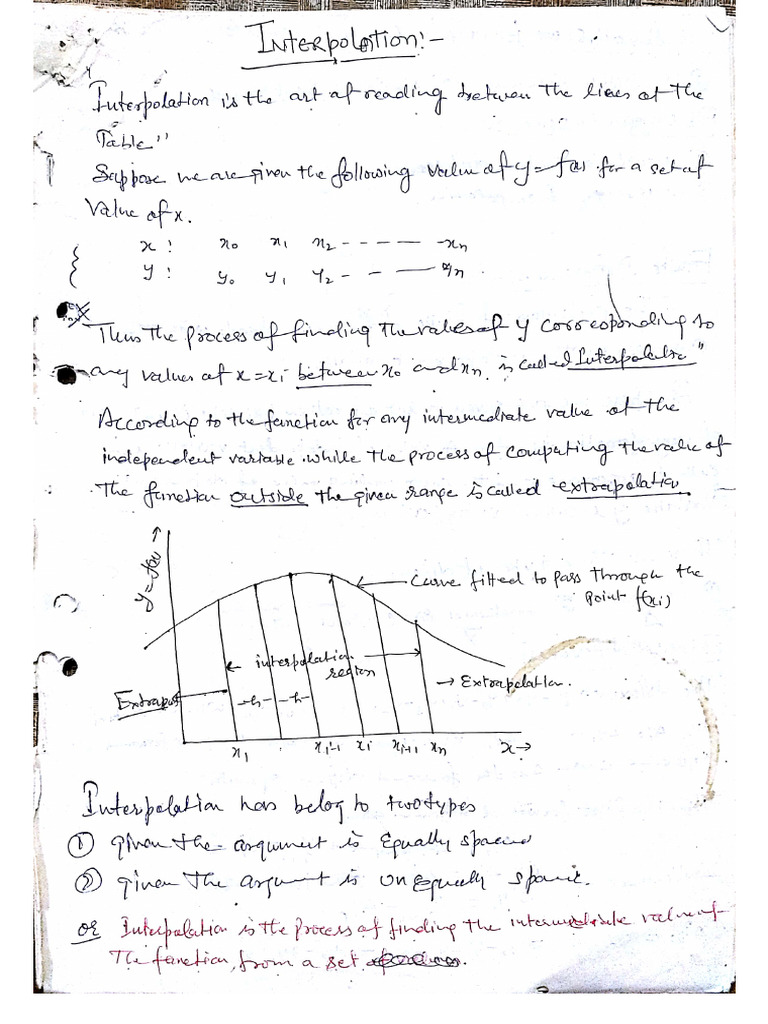 Interpolation:-
"Interpolation is the art of reading between the lines of the
Table"
Suppose we are given the following value of y=f(x) for a set of
value of x.
x : x0 x1 x2 - - - - - -xn
y : y0 y1 y2 - - - yn
Thus the process of finding the values of y corresponding to
any values of x=xi between x0 and xn. is called Interpolation"
According to the function for any intermediate value of the
independent variable. while the process of computing the value of
The function outside the given range is called extrapolation.
y=f(x) →
Curve fitted to pass through the
point f(xi)
← interpolation →
region
Extrapol
→ Extrapolation.
-h- -h-
x1 xi-1 xi xi+1 xn x→
Interpolation has belog to two types
① given the argument is Equally spaced
② given The argument is un equally
or Interpolation is the process of finding the intermediate value of
The function, from a set of